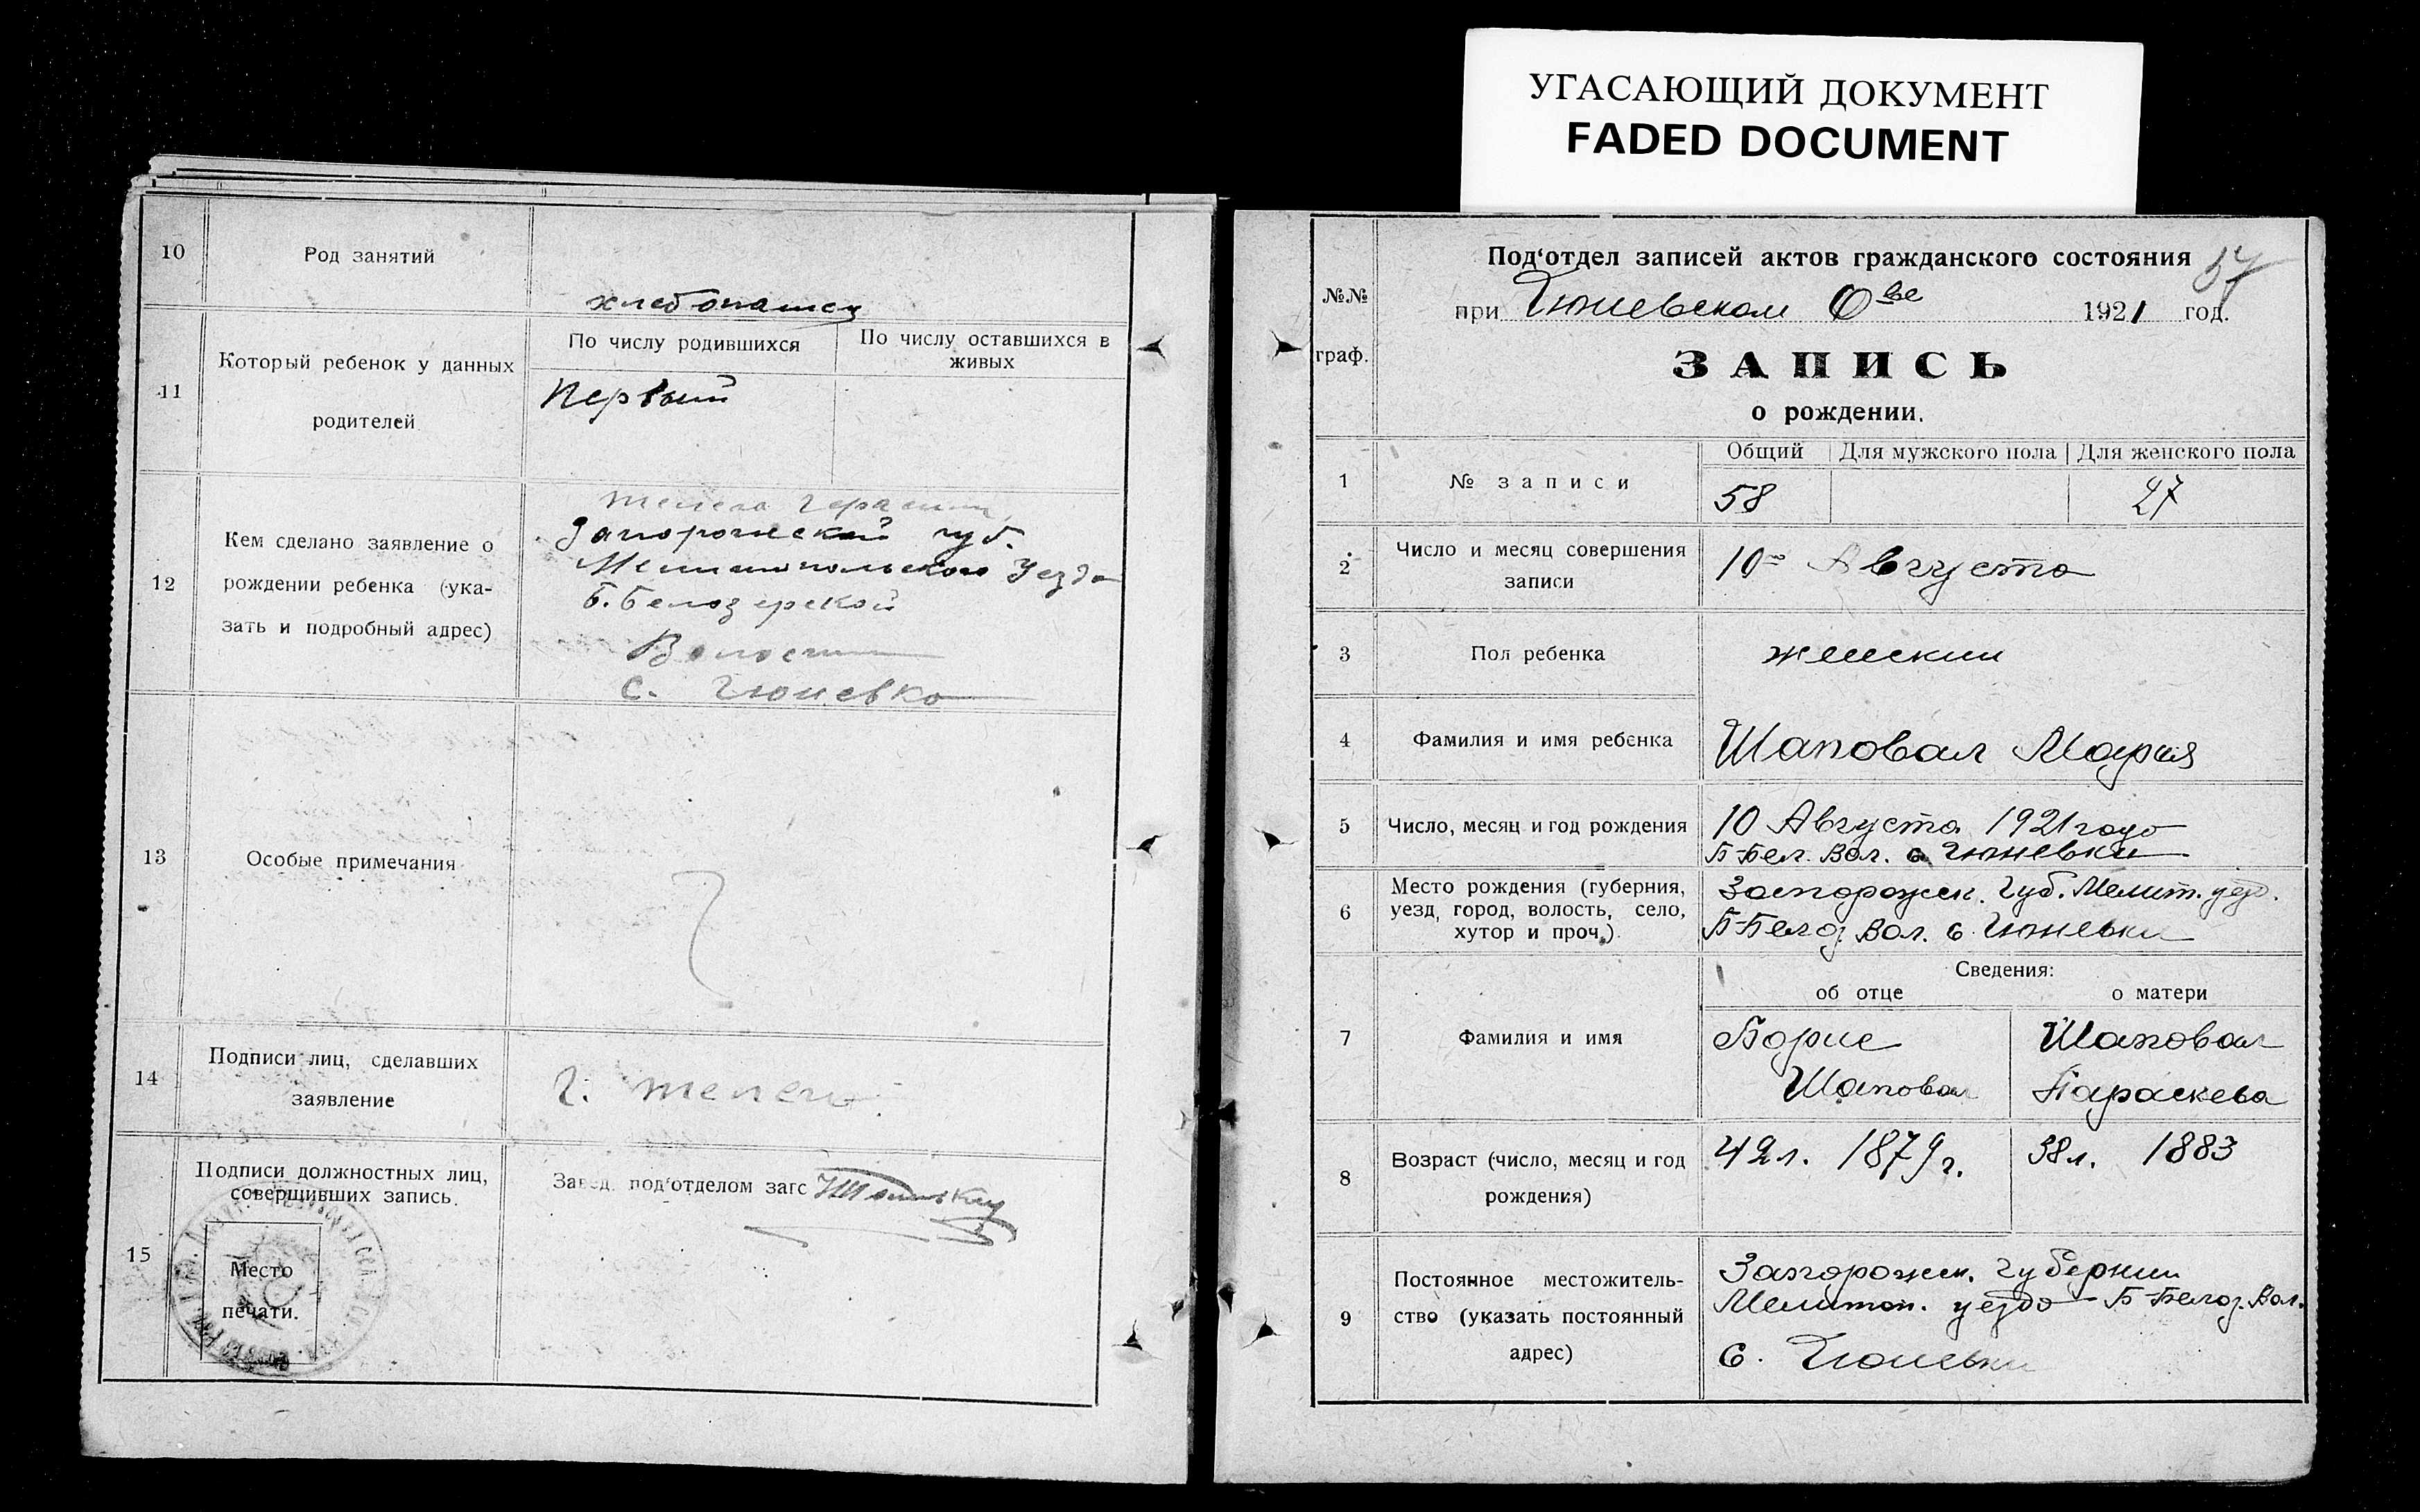 УГАСАЮЩИЙ ДОКУМЕНТ
FADED DOCUMENT
10
Род занятий
хлебопашец
11
Который ребенок у данных
родителей
По числу родившихся
По числу оставшихся в
живых
Первый
12
Кем сделано заявление о
рождении ребенка (ука-
зать и подробный адрес)
Запорожской губ.
Мелитопольского Уезда
Б. Белозерской
Волости
с. Гюневка
13
Особые примечания
14
Подписи лиц, сделавших
заявление
15
Подписи должностных лиц,
совершивших запись.
Завед. под‘отделом загс
Место
печати.
№№
граф.
Под‘отдел записей актов гражданского состояния
57
при Гюневском 1921 год.
ЗАПИСЬ
о рождении.
1
№ записи
Общий
Для мужского пола
Для женского пола
58
27
2
Число и месяц совершения
записи
10го Августа
3
Пол ребенка
женский
4
Фамилия и имя ребенка
Шаповал Мария
5
Число, месяц и год рождения
10 Августа 1921 года
Б-Бел. Вол. с. Гюневки
6
Место рождения (губерния,
уезд, город, волость, село,
хутор и проч.)
Запорожск. Губ. Мелит. уезд.
Б-Белоз. Вол. с. Гюневки
Сведения:
об отце
о матери
7
Фамилия и имя
Борис
Шаповал
Шаповал
Параскева
8
Возраст (число, месяц и год
рождения)
42 л. 1879 г.
38 л. 1883
9
Постоянное местожитель-
ство (указать постоянный
адрес)
Запорожск. Губернии
Мелитоп. уезда Б-Белоз. Вол.
с. Гюневки